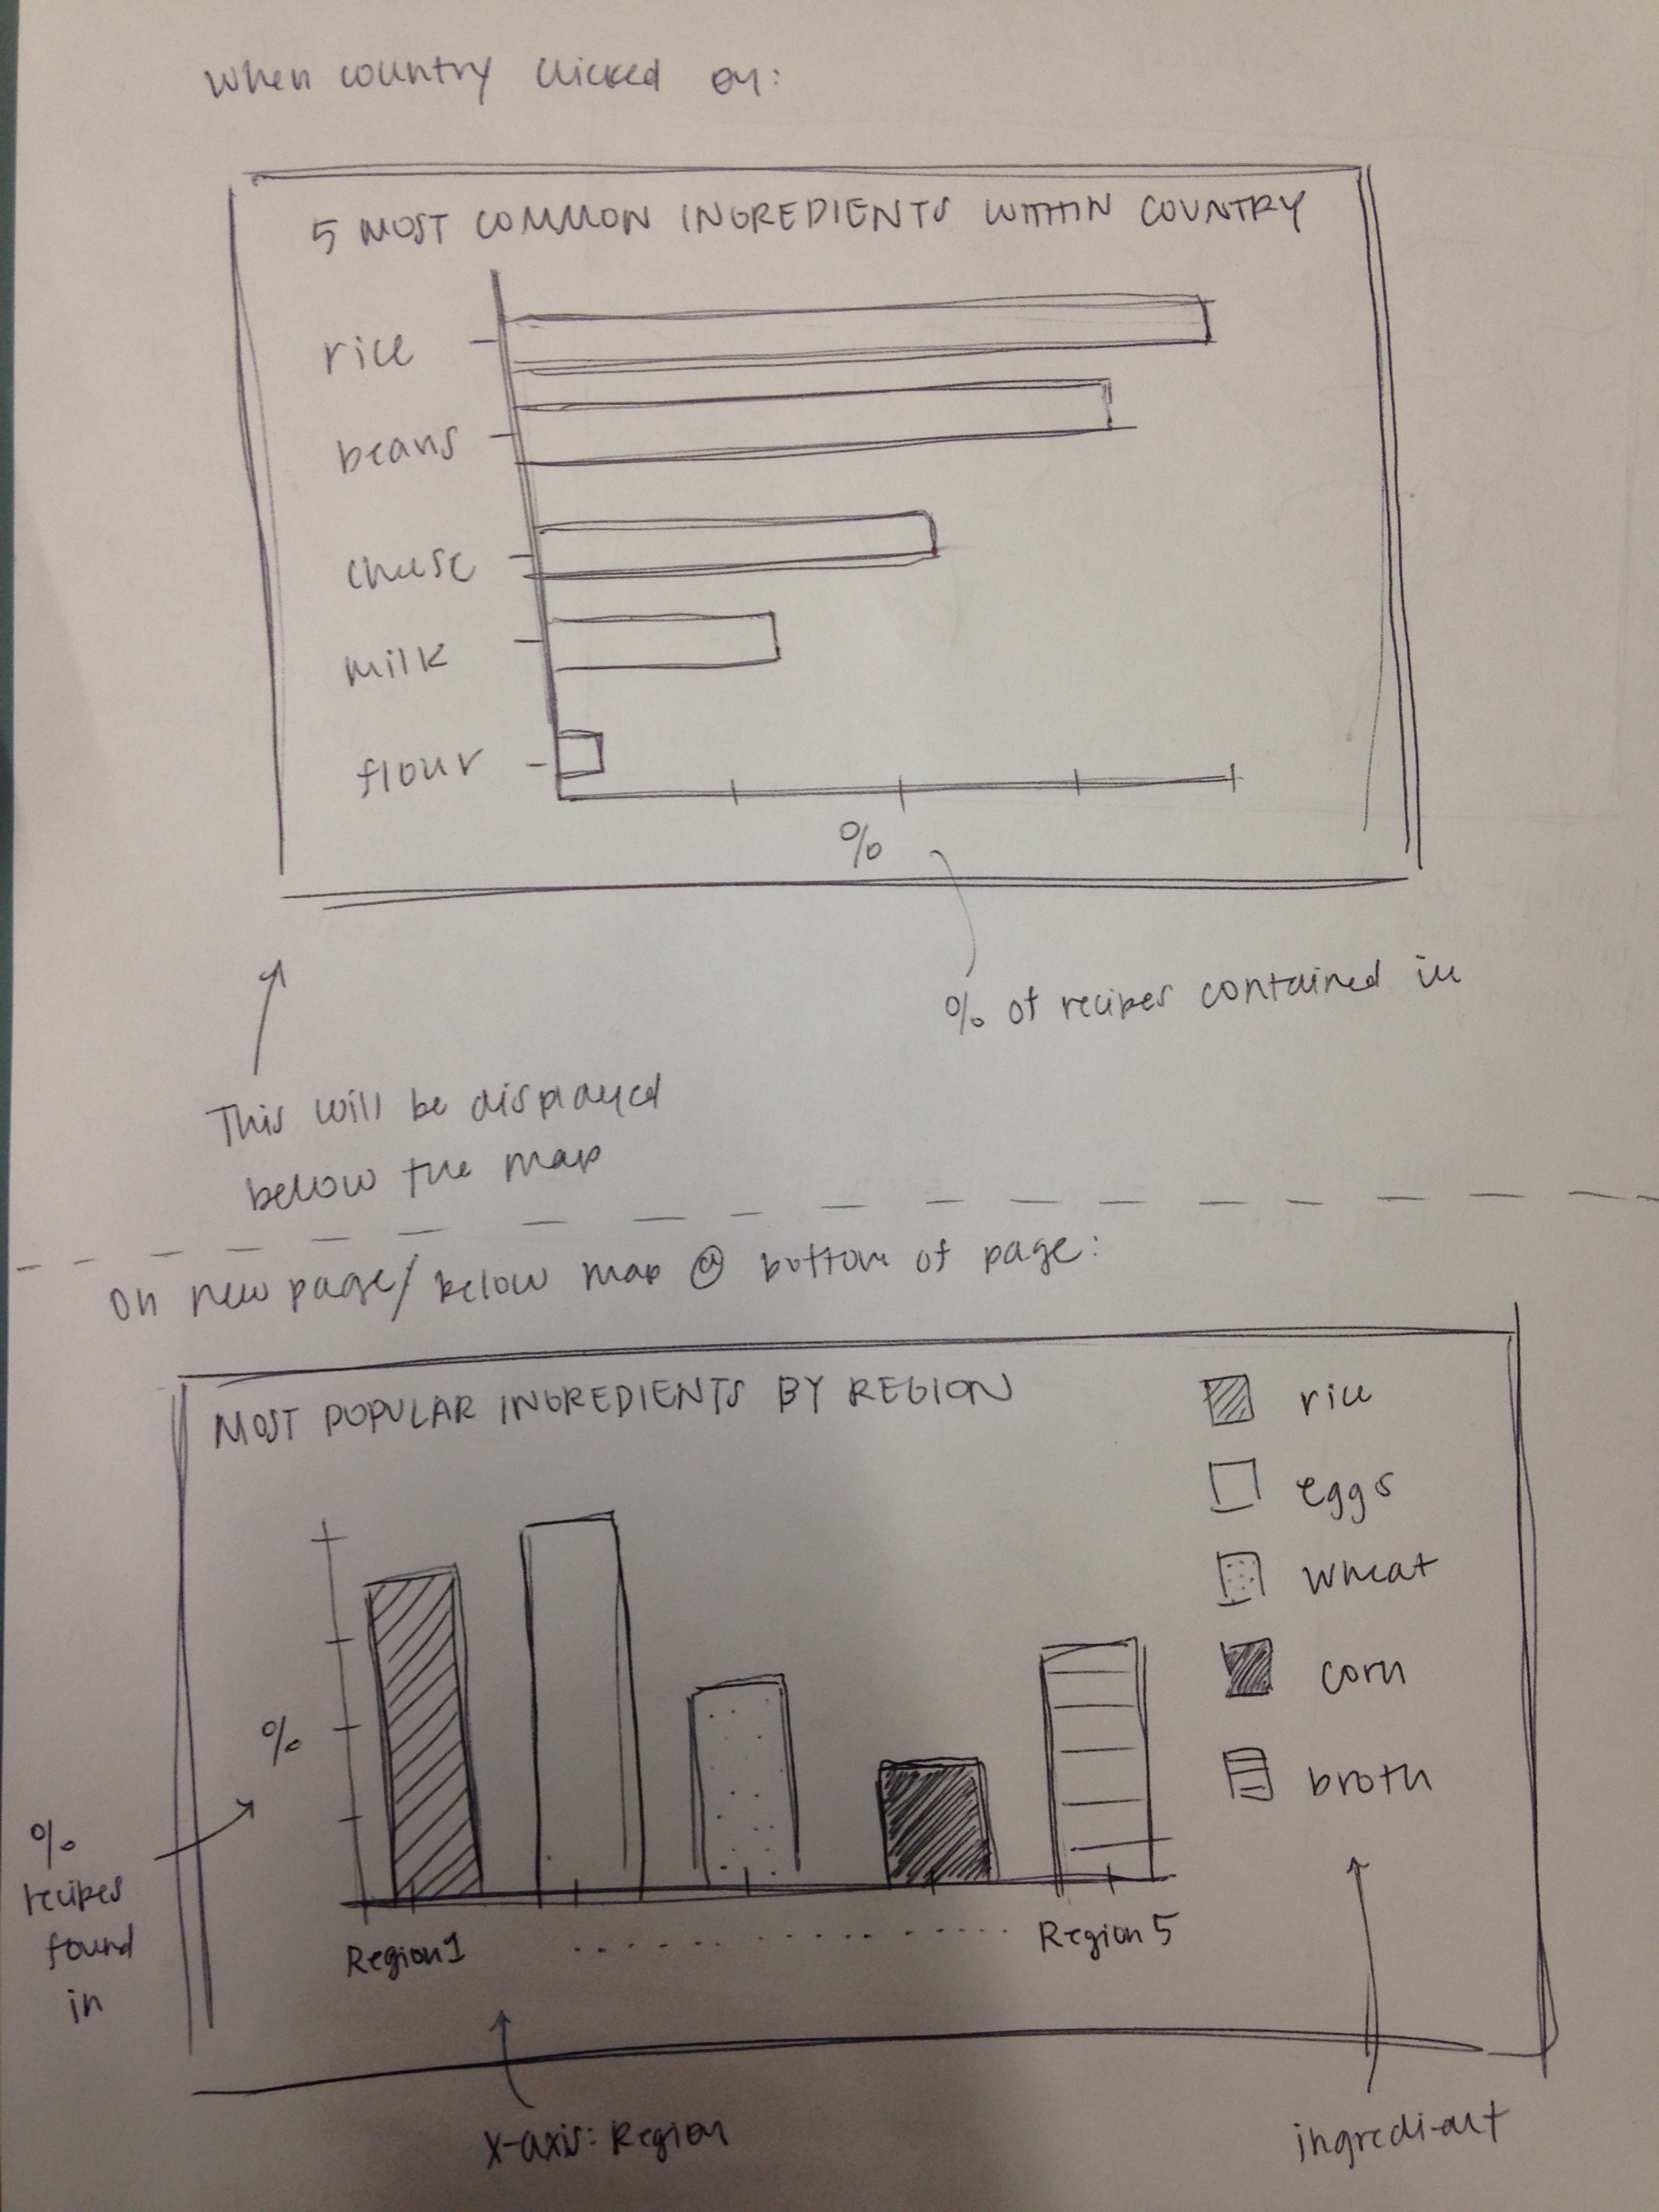 when country clicked on:
5 MOST COMMON INGREDIENTS WITHIN COUNTRY
rice
beans
cheese
milk
flour
%
% of recipes contained in
This will be displayed
below the map
on new page/ below map @ bottom of page:
MOST POPULAR INGREDIENTS BY REGION
rice
eggs
wheat
corn
broth
%
%
recipes
found
in
Region 1
Region 5
x-axis: Region
ingredient